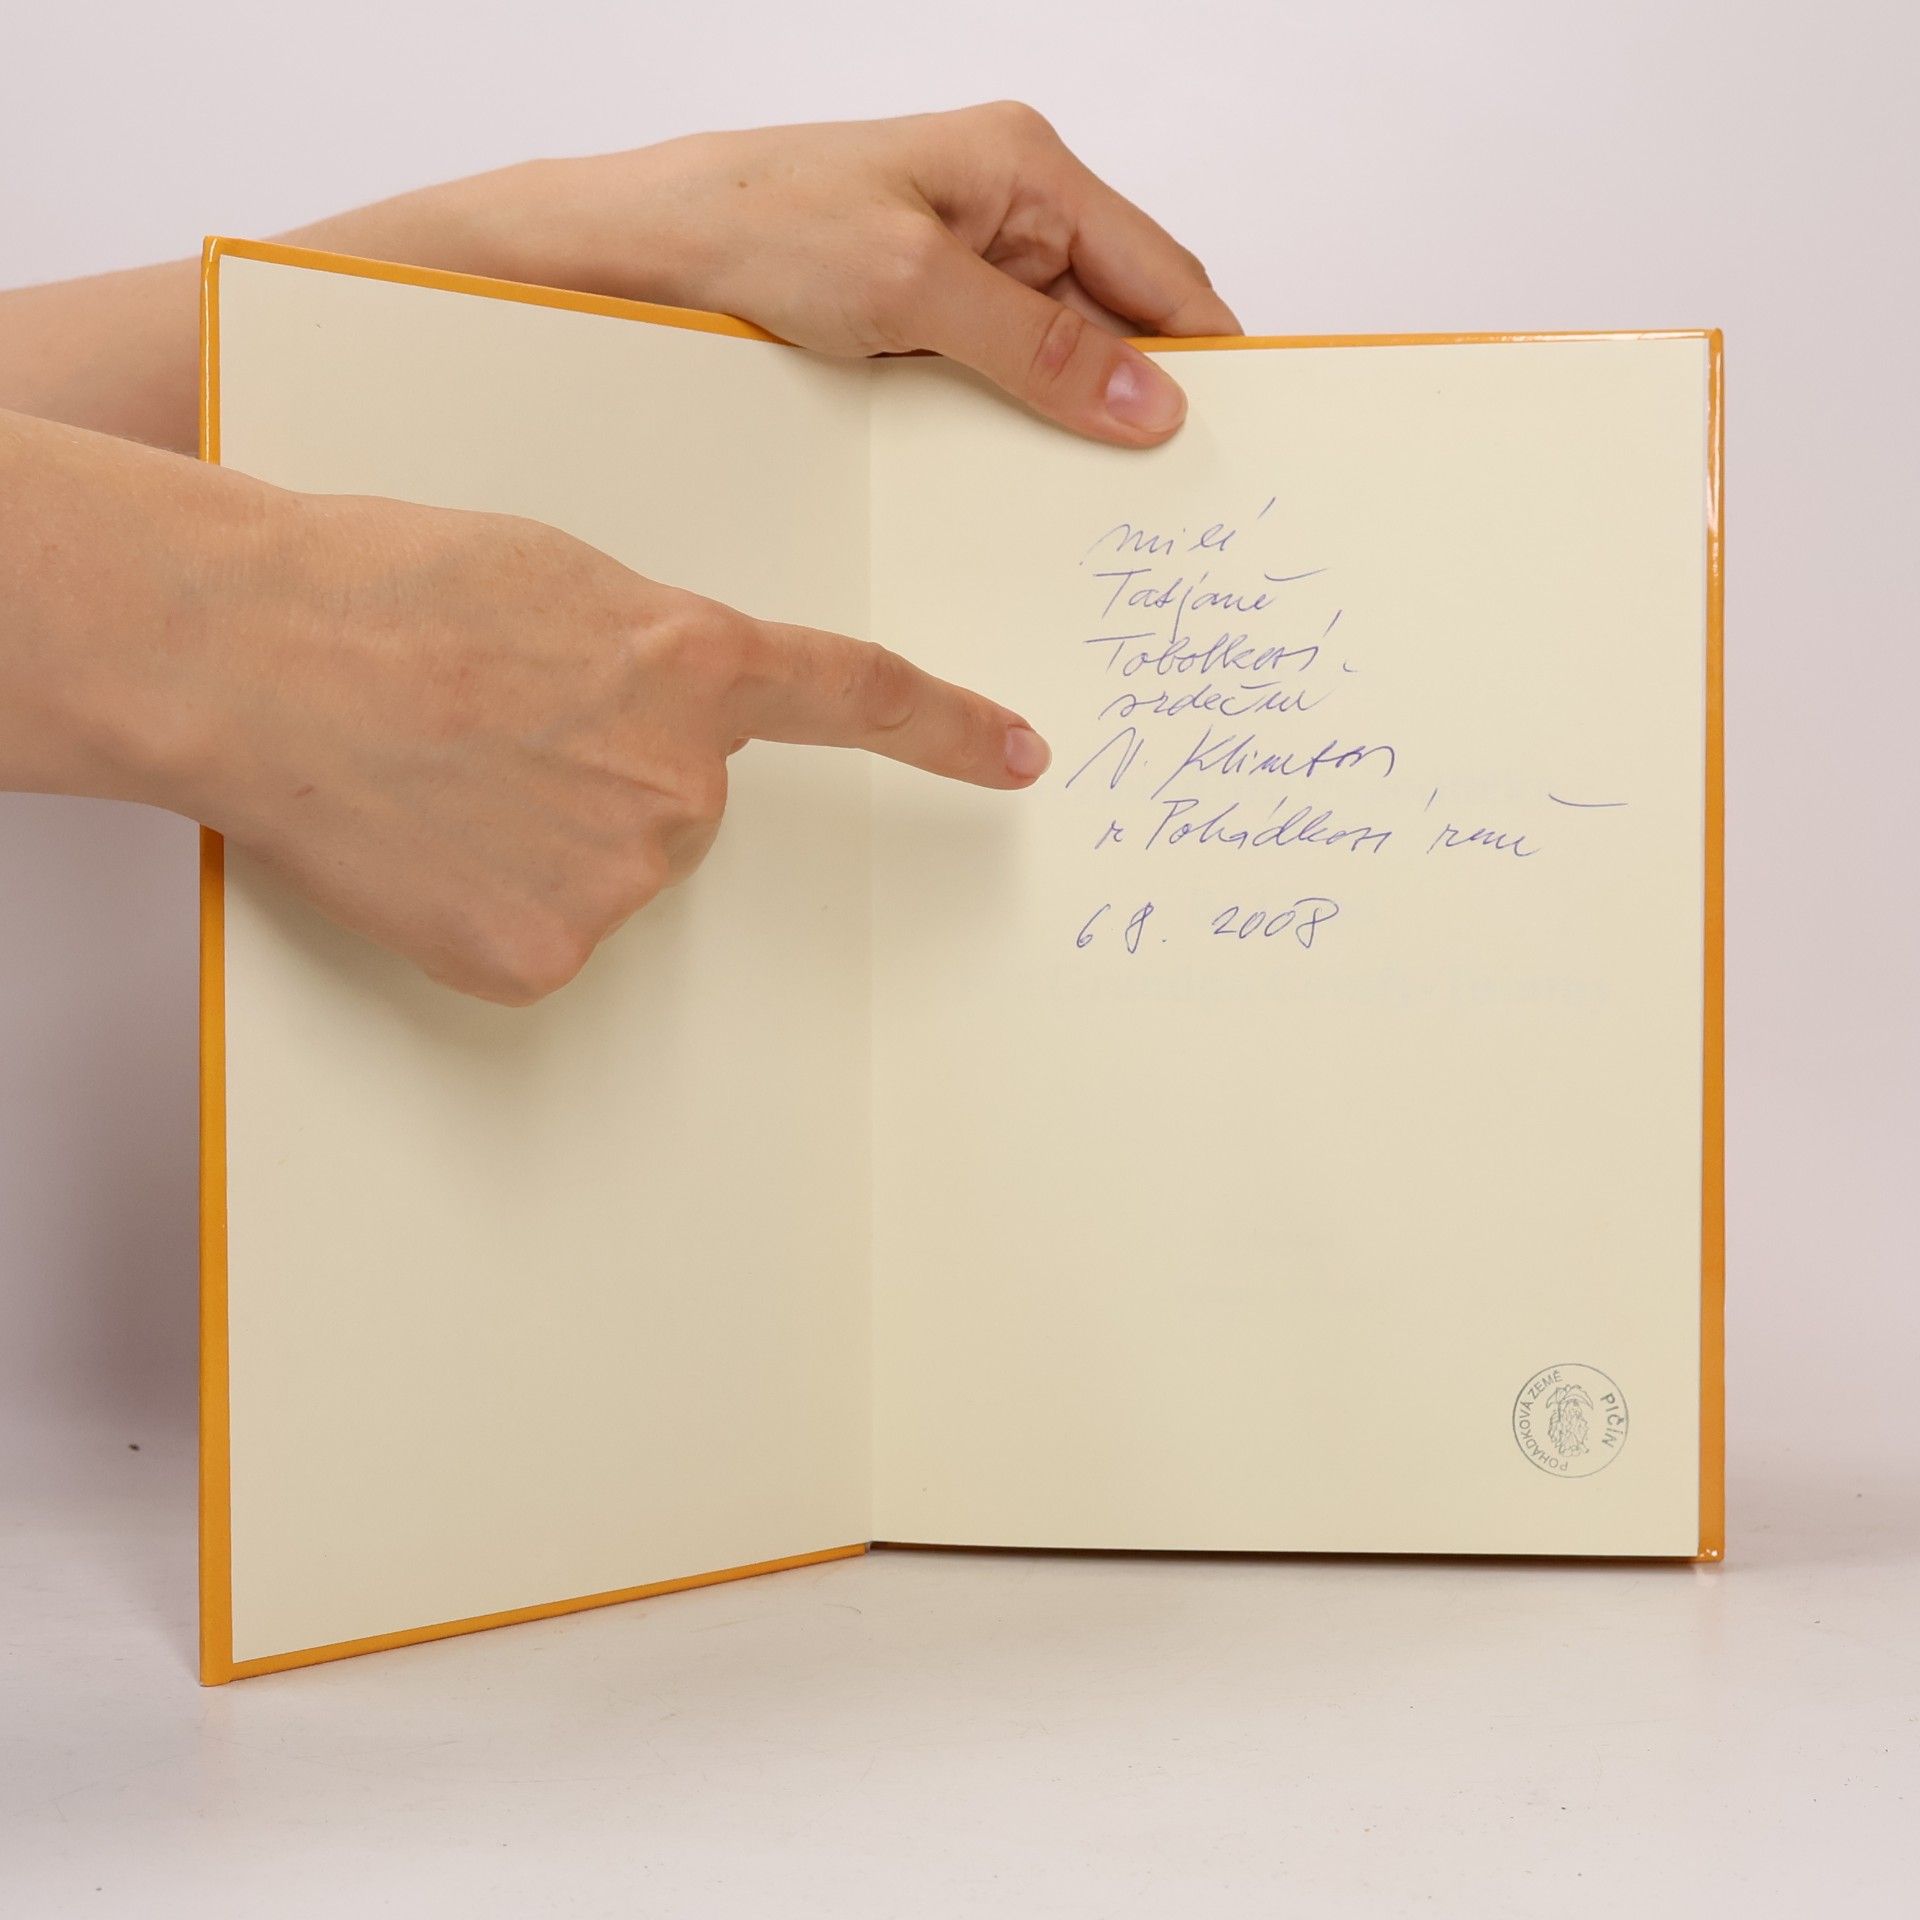 milé
Tatjaně
Tobolkové
srdečně
V. Klimtová
z Pohádkové země
6 8. 2008
POHÁDKOVÁ ZEMĚ
PIČÍN